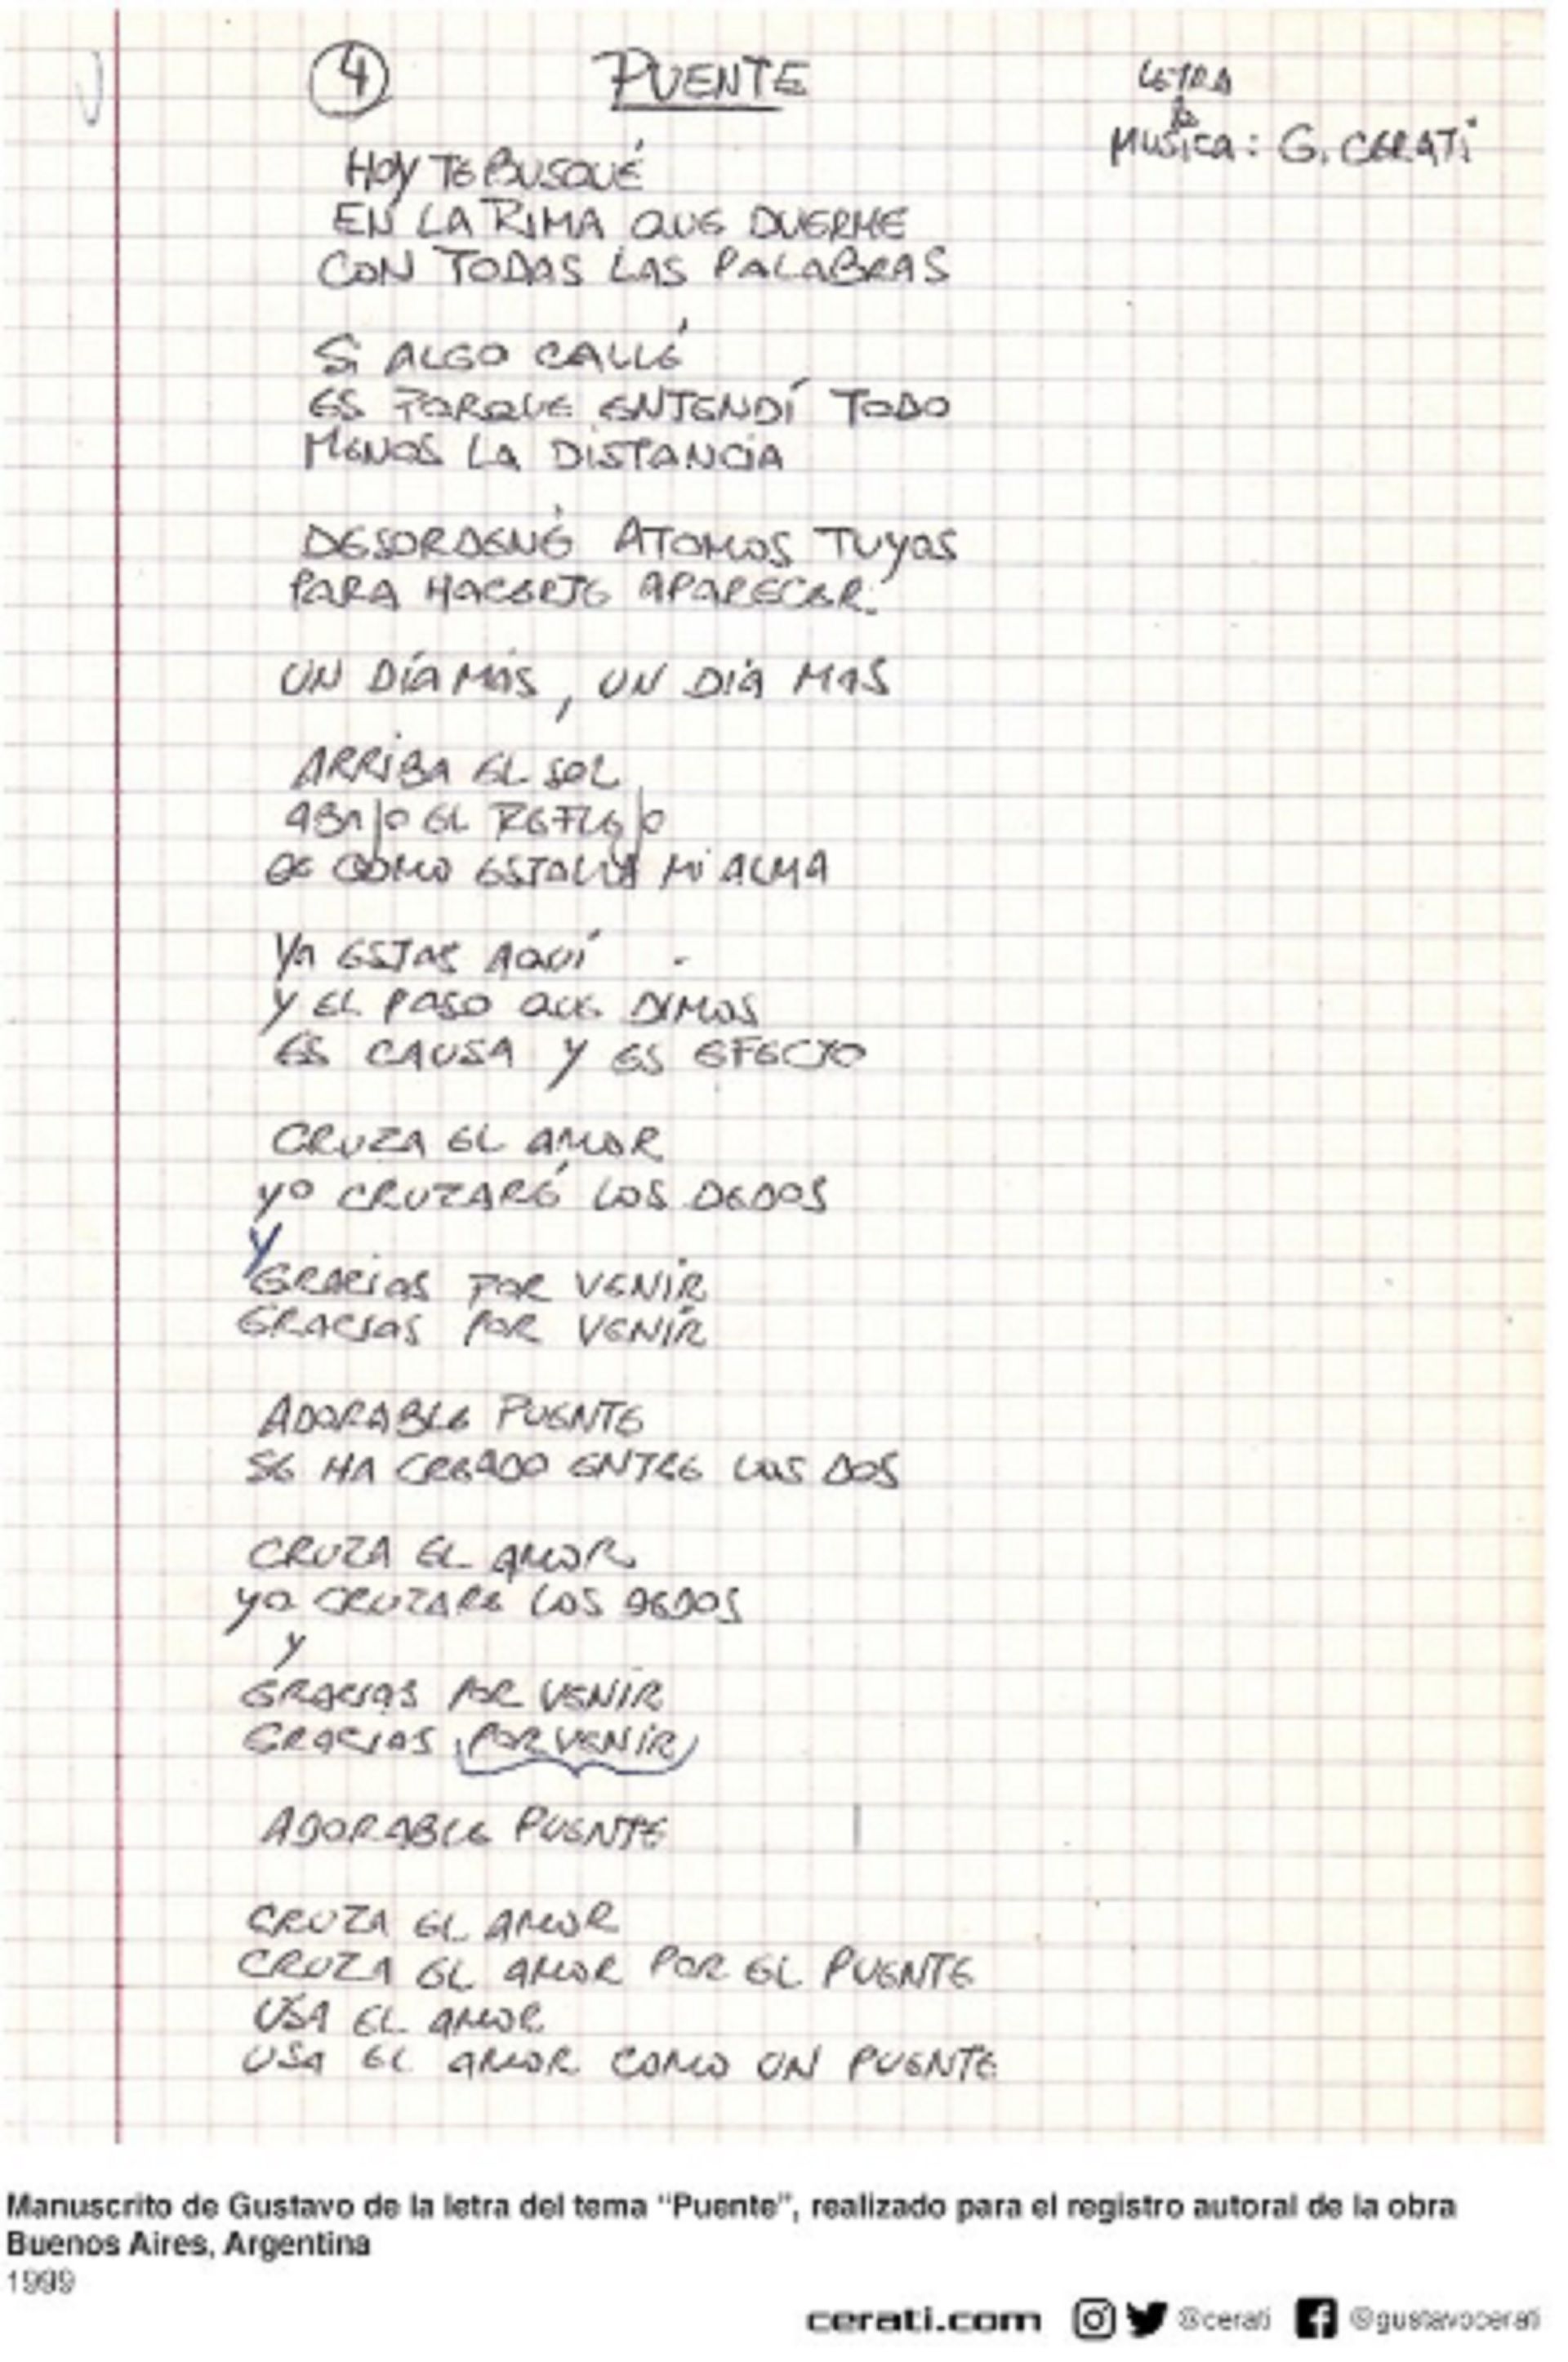 4 PUENTE
LETRA
&
MUSICA: G. CERATI
HOY TE BUSQUÉ
EN LA RIMA QUE DUERME
CON TODAS LAS PALABRAS
SI ALGO CALLÉ
ES PORQUE ENTENDÍ TODO
MENOS LA DISTANCIA
DESORDENÉ ATOMOS TUYOS
PARA HACERTE APARECER.
UN DÍA MAS, UN DIA MAS
ARRIBA EL SOL
ABAJO EL REFLEJO
DE COMO ESTALLA MI ALMA
YA ESTAS AQUÍ
Y EL PASO QUE DIMOS
ES CAUSA Y ES EFECTO
CRUZA EL AMOR
YO CRUZARÉ LOS DEDOS
Y
GRACIAS POR VENIR
GRACIAS POR VENIR
ADORABLE PUENTE
SE HA CREADO ENTRE LOS DOS
CRUZA EL AMOR
YO CRUZARE LOS DEDOS
Y
GRACIAS POR VENIR
GRACIAS POR VENIR
ADORABLE PUENTE
CRUZA EL AMOR
CRUZA EL AMOR POR EL PUENTE
USA EL AMOR
USA EL AMOR COMO UN PUENTE
Manuscrito de Gustavo de la letra del tema “Puente”, realizado para el registro autoral de la obra
Buenos Aires, Argentina
1999
cerati.com @cerati @gustavocerati